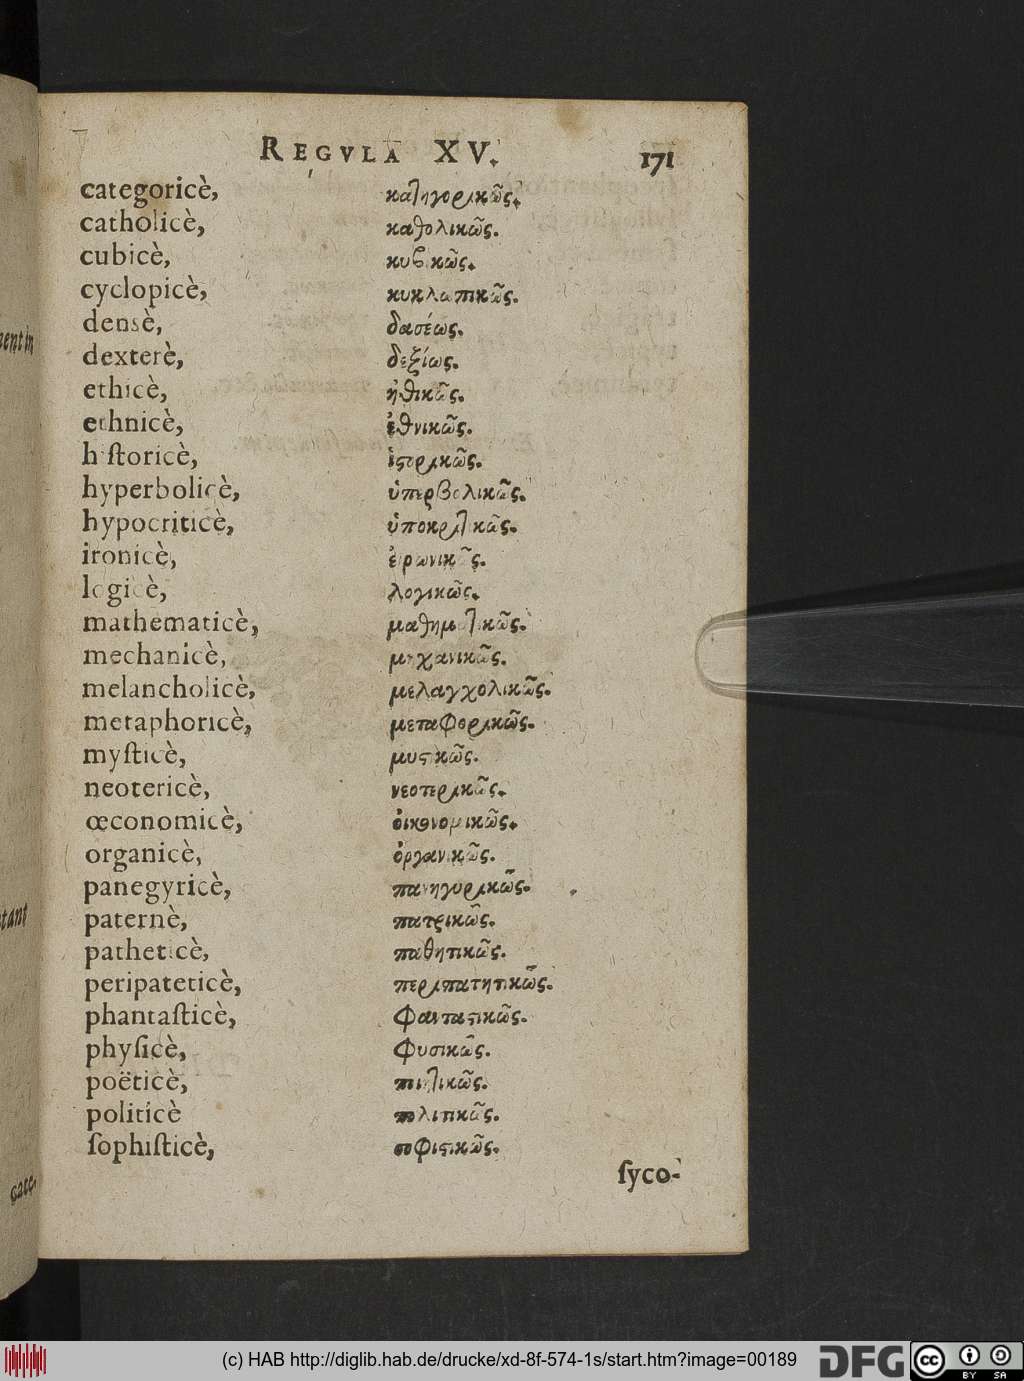 REGVLA XV. 171
categoricè, κατηγορικῶς.
catholicè, καθολικῶς.
cubicè, κυβικῶς.
cyclopicè, κυκλωπικῶς.
densè, δασέως.
dexterè, δεξίως.
ethicè, ἠθικῶς.
ethnicè, ἐθνικῶς.
hiſtoricè, ἱστορικῶς.
hyperbolicè, ὑπερβολικῶς.
hypocriticè, ὑποκριτικῶς.
ironicè, ἐιρωνικῶς.
logicè, λογικῶς.
mathematicè, μαθηματικῶς.
mechanicè, μηχανικῶς.
melancholicè, μελαγχολικῶς.
metaphoricè, μεταφορικῶς.
myſticè, μυστικῶς.
neotericè, νεοτερικῶς.
œconomicè, ὀικονομικῶς.
organicè, ὀργανικῶς.
panegyricè, πανηγυρικῶς.
paternè, πατρικῶς.
patheticè, παθητικῶς.
peripateticè, περιπατητικῶς.
phantaſticè, φανταστικῶς.
phyſicè, φυσικῶς.
poëticè, ποιητικῶς.
politicè πολιτικῶς.
ſophiſticè, σοφιστικῶς.
ſyco-
ment in
tant
(c) HAB http://diglib.hab.de/drucke/xd-8f-574-1s/start.htm?image=00189 DFG cc BY SA